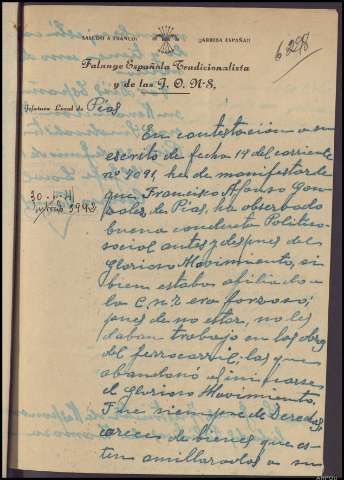 SALUDO A FRANCO:
¡ARRIBA ESPAÑA!!
6298
Falange Española Tradicionalista
y de las J. O. N-S.
Jefatura Local de Pías
En contestación a su
escrito de fecha 19 del corriente
nº 4091, he de manifestarle
que Francisco Afonso Gon
zales de Pias, ha observado
buena conducta Politico-
social antes y despues del
Glorioso Movimiento, si
bien estaba afiliado a
la C.n.t. era forzoso;
pues de no estar, no les
daban trabajo en las obras
del ferrocarril, las que
abandonó al iniciarse
el Glorioso Movimiento.
Fue siempre de Derechas,
carece de bienes que es-
ten amillarados a su
3942